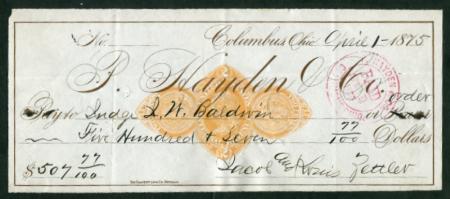 No. Columbus Ohio April 1- 1875
P. Hayden & Co.
Pay to Judge J. W. Baldwin or order
Five Hundred & Seven 77/100 Dollars
$507 77/100 Jacob and Louis Zettler